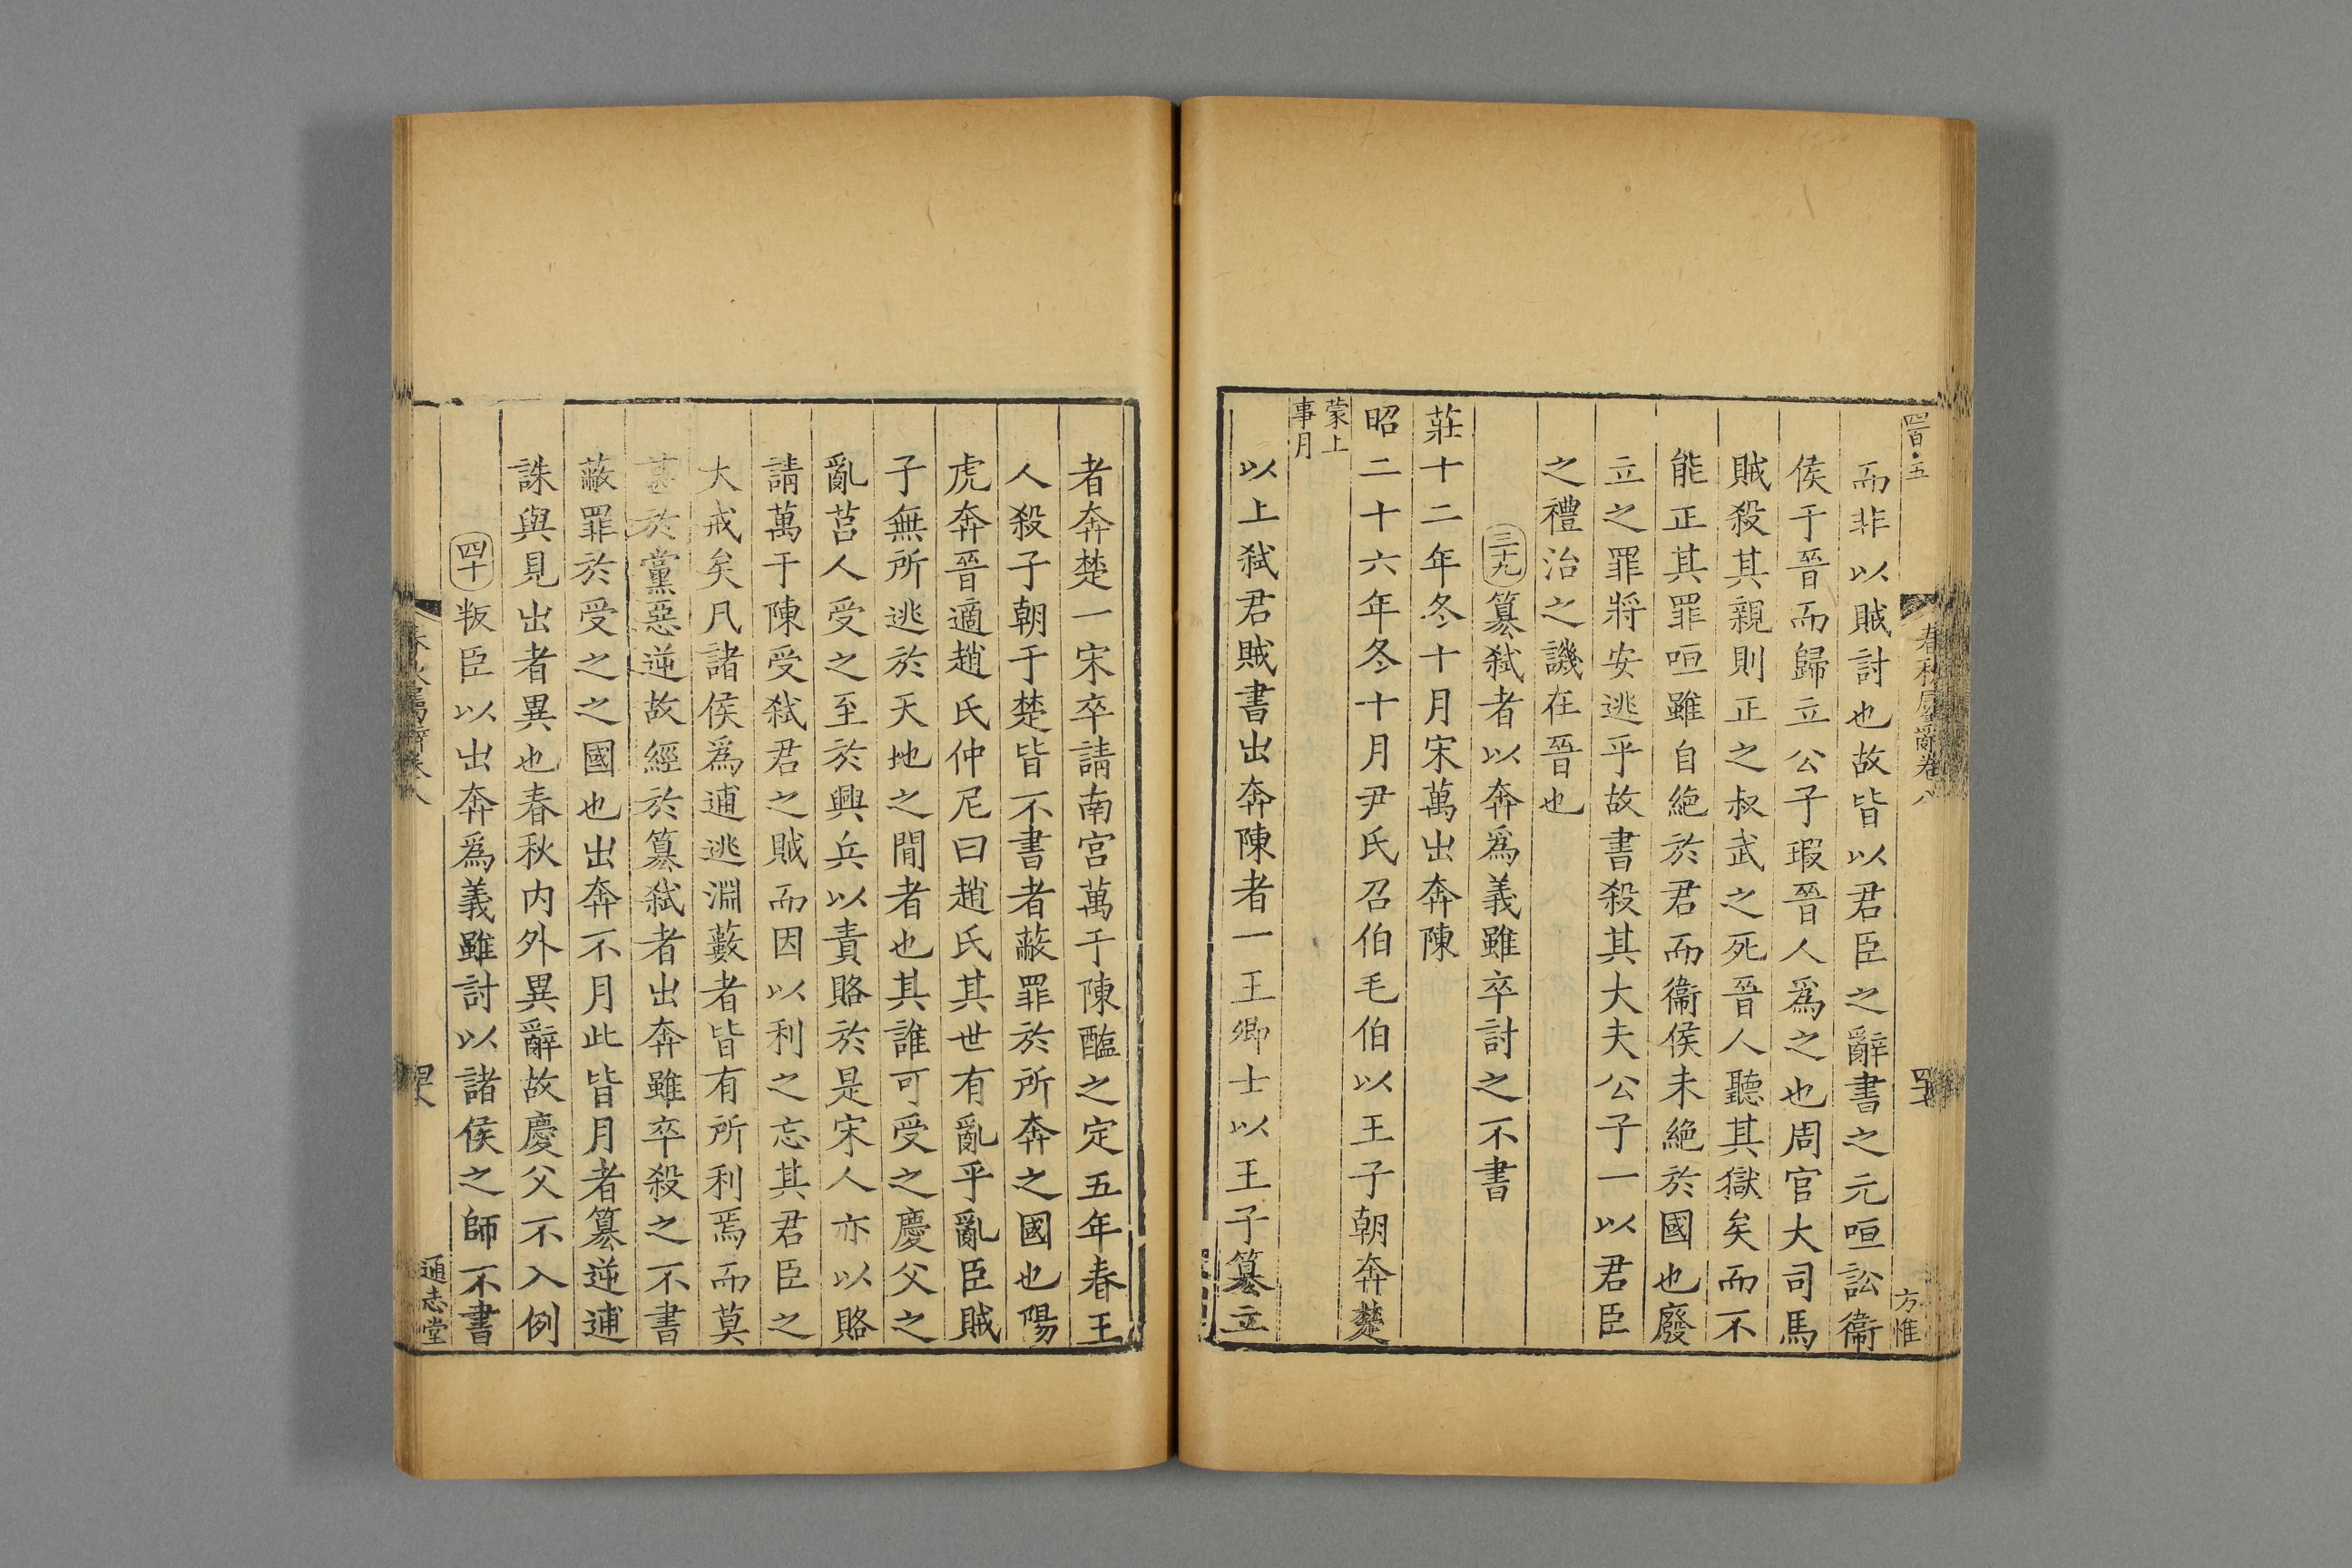 而非以賊討也故皆以君臣之辭書之元咺訟衞
侯于晉而歸立公子瑕晉人爲之也周官大司馬
賊殺其親則正之叔武之死晉人聽其獄矣而不
能正其罪咺雖自絶於君而衞侯未絶於國也廢
立之罪將安逃乎故書殺其大夫公子一以君臣
之禮治之譏在晉也
三十九 篡弑者以奔爲義雖卒討之不書
莊十二年冬十月宋萬出奔陳
昭二十六年冬十月尹氏召伯毛伯以王子朝奔楚
蒙上
事月
以上弑君賊書出奔陳者一王卿士以王子篡立
者奔楚一宋卒請南宫萬于陳醢之定五年春王
人殺子朝于楚皆不書者蔽罪於所奔之國也陽
虎奔晉適趙氏仲尼曰趙氏其世有亂乎亂臣賊
子無所逃於天地之閒者也其誰可受之慶父之
亂莒人受之至於興兵以責賂於是宋人亦以賂
請萬于陳受弑君之賊而因以利之忘其君臣之
大戒矣凡諸侯爲逋逃淵藪者皆有所利焉而莫
甚於黨惡逆故經於篡弑者出奔雖卒殺之不書
蔽罪於受之之國也出奔不月此皆月者篡逆逋
誅與見出者異也春秋内外異辭故慶父不入例
四十 叛臣以出奔爲義雖討以諸侯之師不書
春秋屬辭卷八
方惟
通志堂